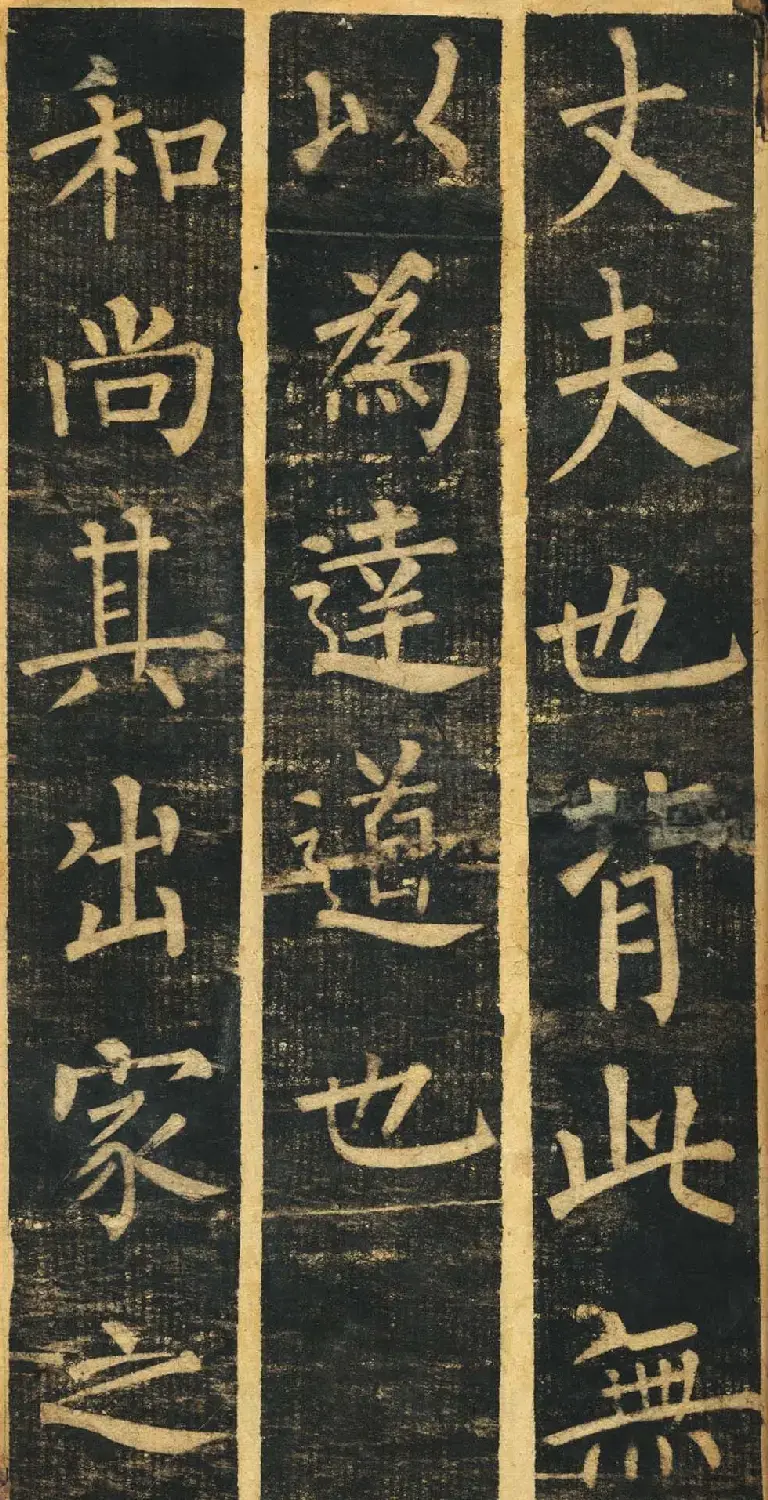 丈夫也背此無
以為達道也
和尚其出家之